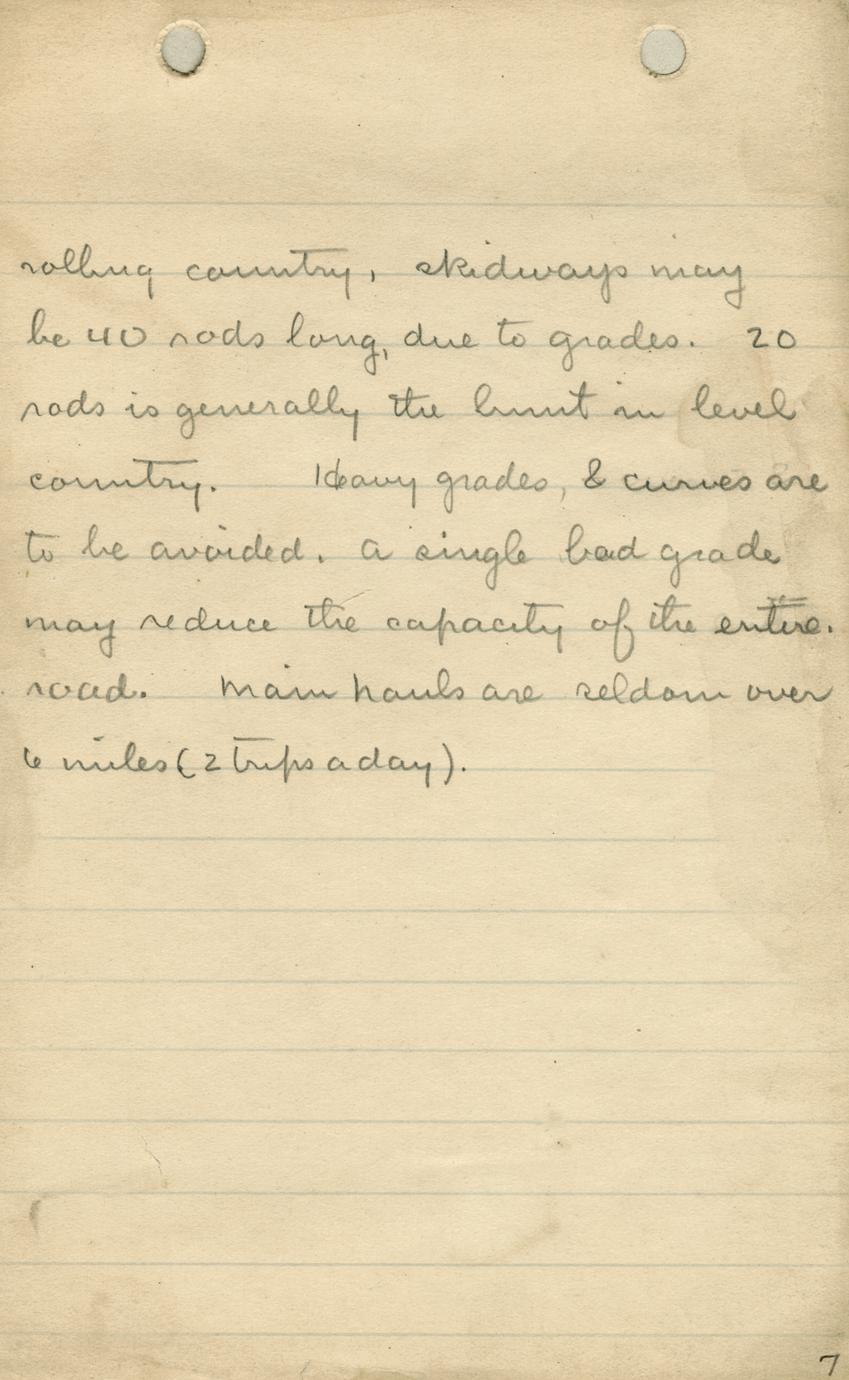 rolling country, skidways may
be 40 rods long, due to grades. 20
rods is generally the limit in level
country. Heavy grades, & curves are
to be avoided. A single bad grade
may reduce the capacity of the entire
road. Main hauls are seldom over
6 miles (2 trips a day).
7